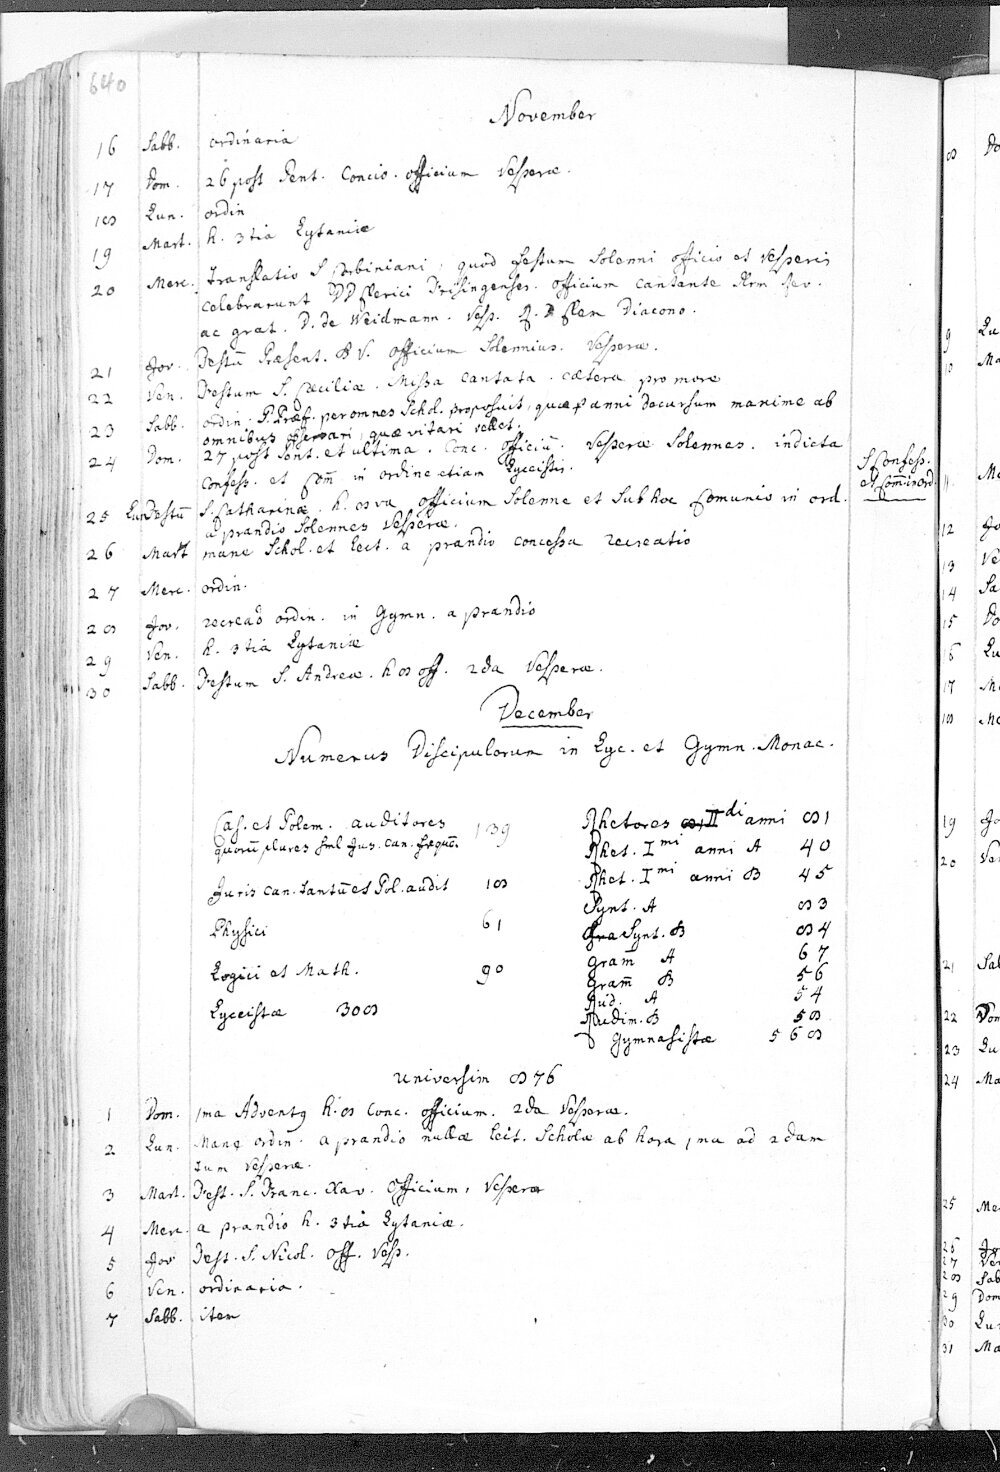 640
November
16 Sabb. ordinaria
17 Dom. 26 post Pent. Concio. officium Vesperæ.
18 Lun. ordin
19 Mart. h. 3tia Lytaniæ
20 Merc. Translatio S Corbiniani, quod festum Solenni officio et Vesperis
celebrarunt DD Clerici Frisingenses. officium cantante
ac grat. D. de Weidmann. Vesp. Diacono.
21 Jov. Festū Præsent. B V. officium Solennius. Vesperæ.
22 Ven. Festum S. Cæciliæ. Missa cantata. cætera pro more
23 Sabb. ordin. P. Præf. per omnes Schol. proposuit, quæ p anni decursum maxime ab
omnibus observari, quæ vitari vellet.
24 Dom. 27 post Pent. et ultima. Conc. officiū. Vesperæ Solennes. indicta
Confess. et Com̄ in ordine etiam Lyceistis.
S Confess.
et Com̄ in ord.
25 Lun Festū S. Catharinæ. h. 8va officium Solenne et Sub hoc Comunio in ord.
a prandio Solennes Vesperæ.
26 Mart mane Schol. et lect. a prandio concessa recreatio
27 Merc. ordin.
28 Jov. recreaõ ordin. in Gymn. a prandio
29 Ven. h. 3tia Lytaniæ
30 Sabb. Festum S. Andreæ. h 8 off. 2da Vesperæ.
December
Numerus Discipulorum in Lyc. et Gymn. Monac.
Cas. et Polem. auditores 139
quorū plures sml Jus. can. frequē.
Juris can. tantū et Pol. audit 18
Physici 61
Logici et Math. 90
Lyceistæ 308
Rhetores IIdi anni 81
Rhet. Imi anni A 40
Rhet. Imi anni B 45
Synt. A 83
Synt. B 84
Gram̄ A 67
Gram̄ B 56
Rud. A 54
Rudim. B 58
Gymnasistæ 568
Universim 876
1 Dom. 1ma Adventq h. 8 Conc. officium. 2da Vesperæ.
2 Lun. Mane ordin. a prandio nullæ lect. Scholæ ab hora 1ma ad 2dam
tum Vesperæ.
3 Mart. Fest. S. Franc. Xav. Officium, Vesperæ
4 Merc. a prandio h. 3tia Lytaniæ.
5 Jov Fest. S. Nicol. off. Vesp.
6 Ven. ordinaria.
7 Sabb. item
8
9
10
11
12
13
14
15
6
17
18
19
20
21
22
23
24
25
26
27
28
29
30
31